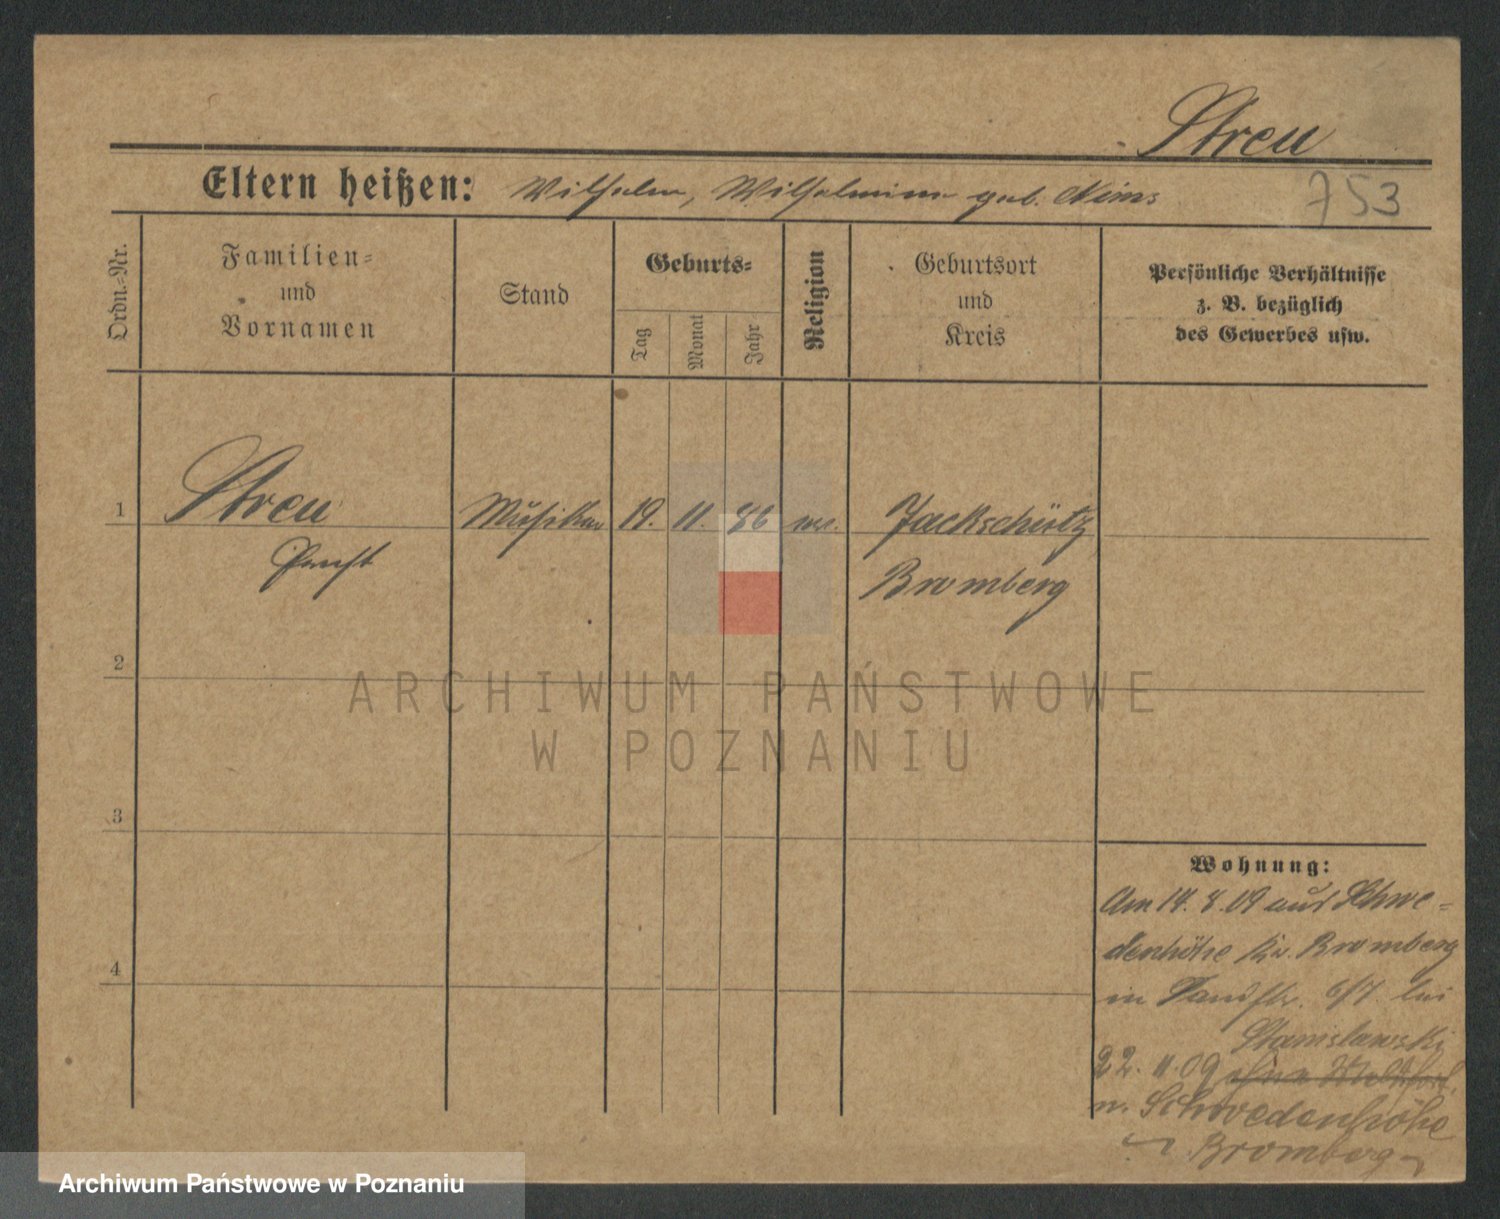 Streu
Eltern heißen: Wilhelm, Wilhelmine geb. Nims
753
Ordn.-Nr.
Familien-
und
Vornamen
Stand
Geburts-
Tag
Monat
Jahr
Religion
Geburtsort
und
Kreis
Persönliche Verhältnisse
z. B. bezüglich
des Gewerbes usw.
1
Streu
Ernst
Musiker
19. 11. 86
Jackschütz
Bromberg
2
3
4
ARCHIWUM PAŃSTWOWE
W POZNANIU
Wohnung:
Am 14. 8. 09 aus Schwe-
denhöhe Kr. Bromberg
in Sandstr. 6/7 bei
Stanislawski
22. 11. 09
n. Schwedenhöhe
Bromberg
Archiwum Państwowe w Poznaniu